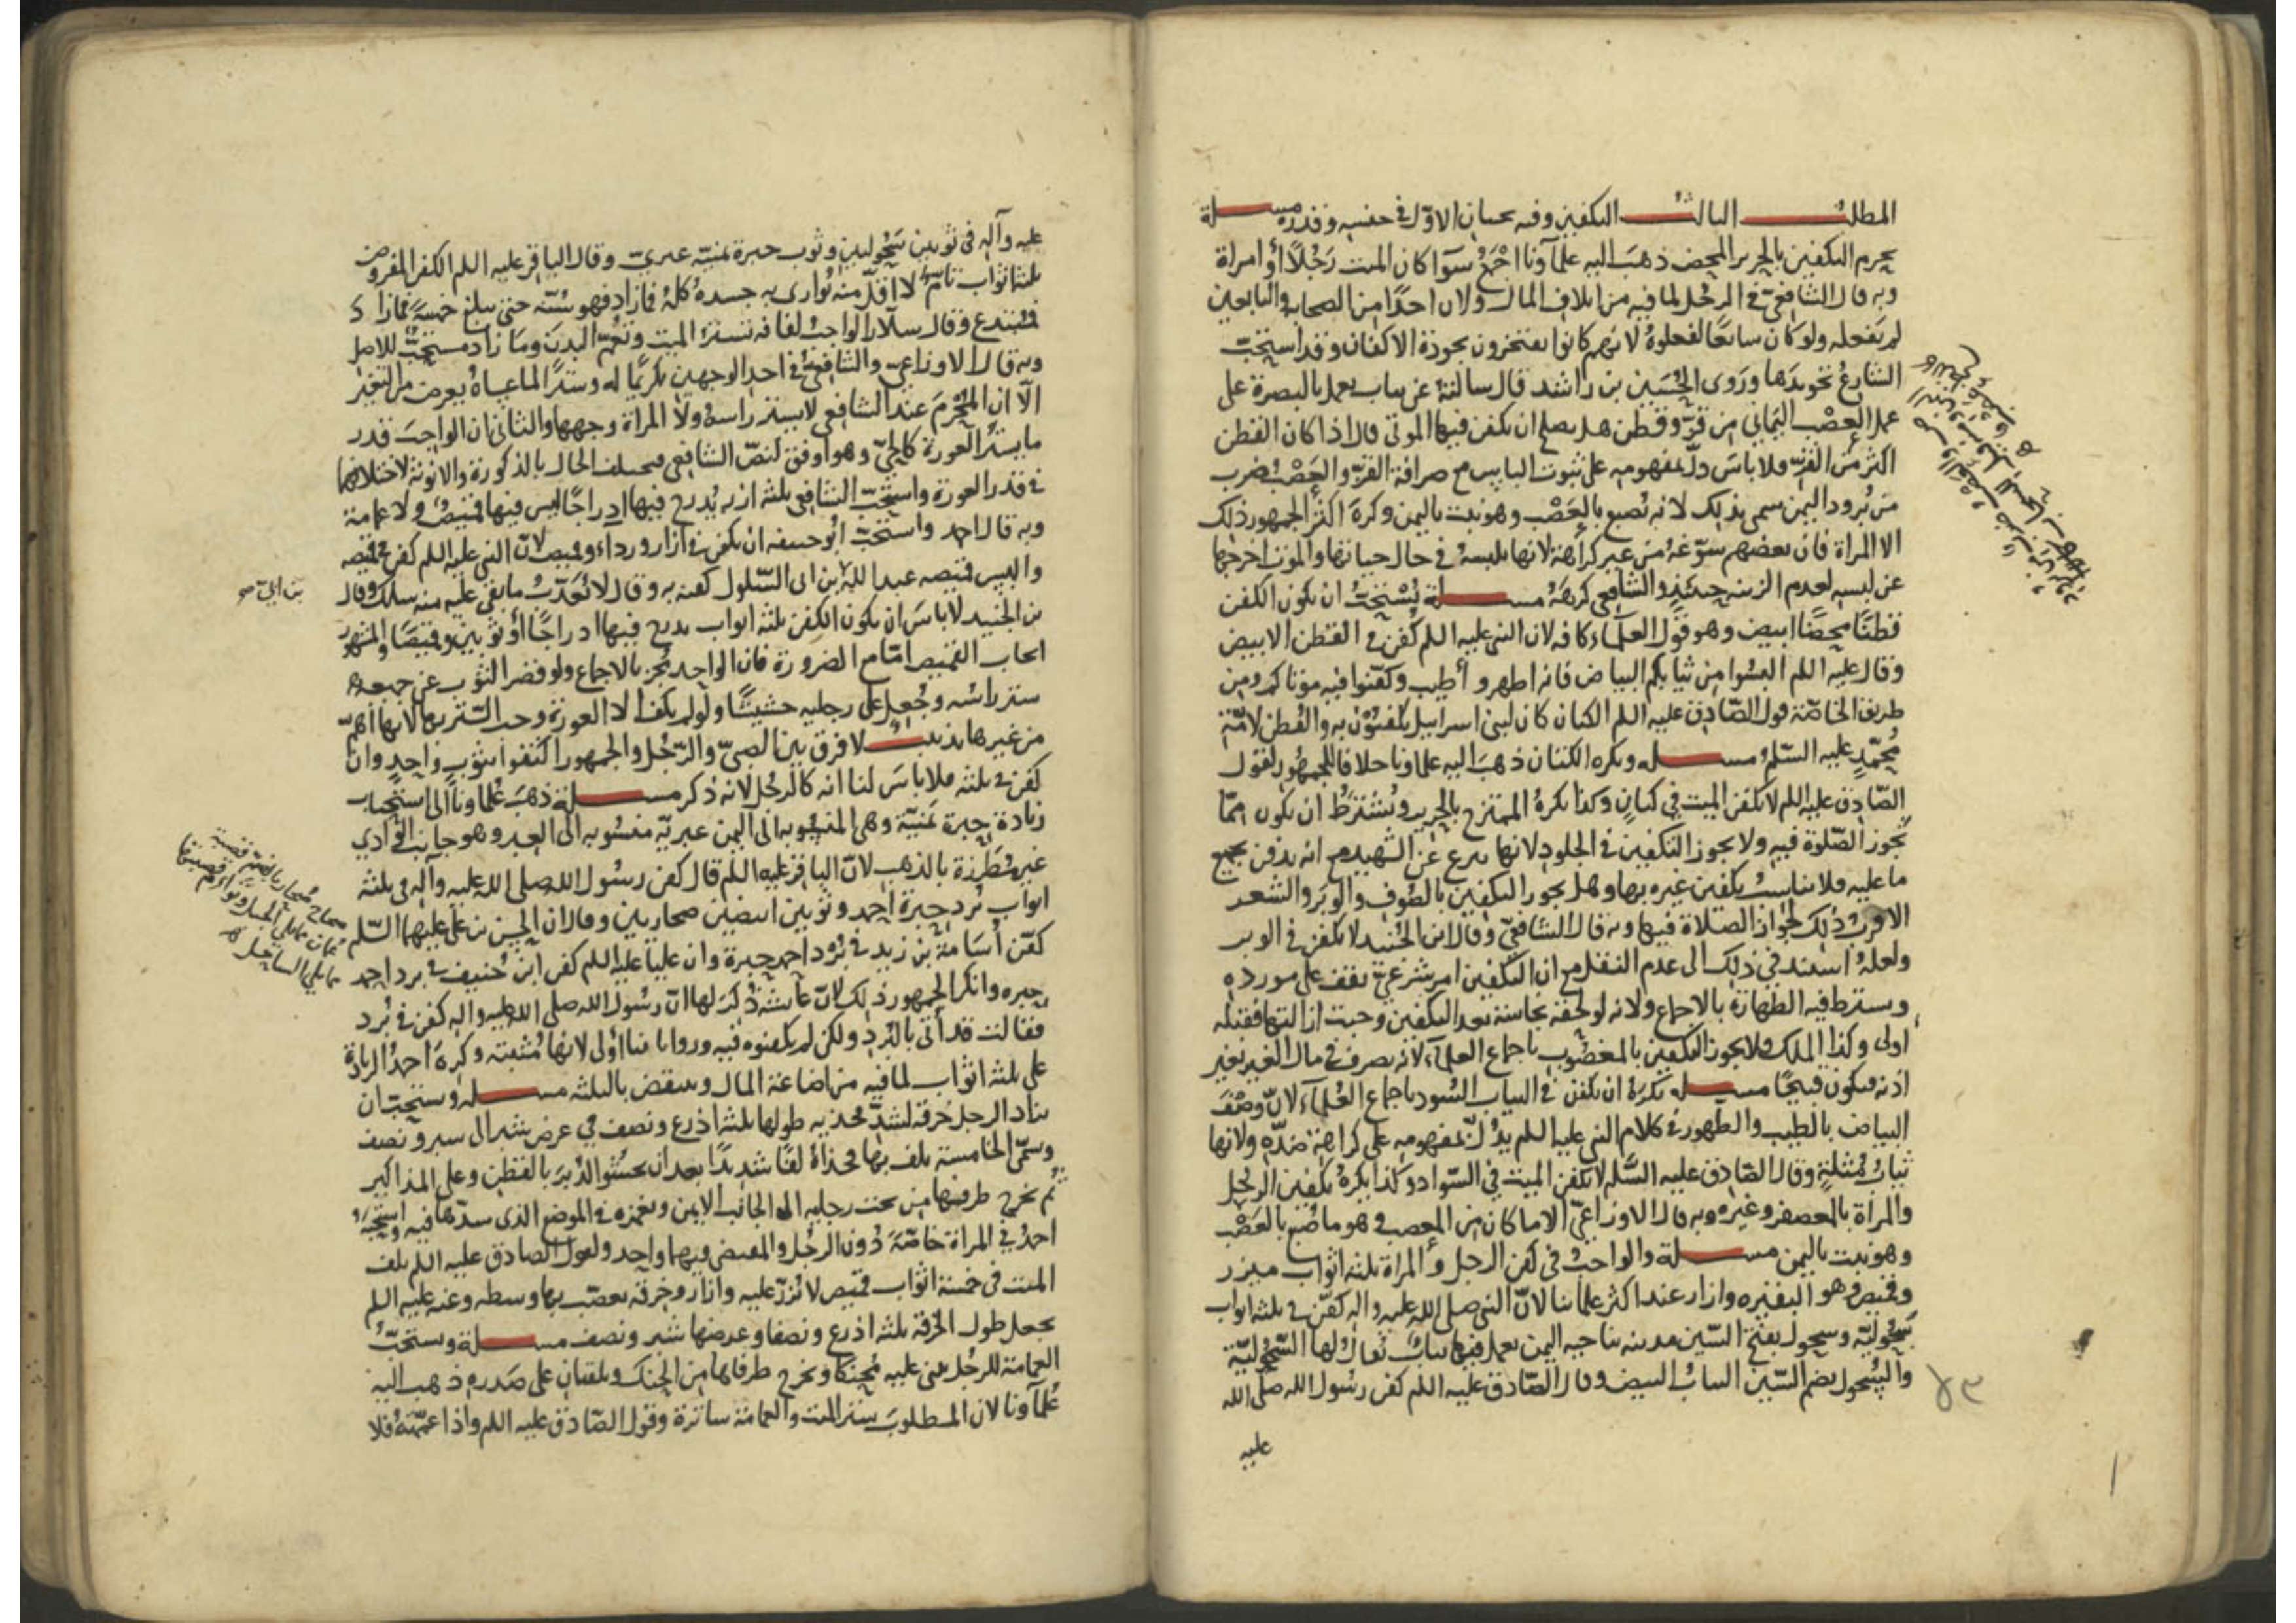 المطلب الثالث التكفين وفيه بحثان الاول في جنسه وقدره مسلة
يحرم التكفين بالحرير المحض ذهب اليه علماونا اجمع سوا كان الميت رجلا او امراة
وبه قال الشافعي في الرجل لما فيه من اتلاف المال ولان احدا من الصحابة والتابعين
لم يفعله ولو كان سايغا لفعلوه لانهم كانوا يفتخرون بجودة الاكفان وقد استحب
الشارع تجويدها وروى الحسين بن راشد قال سالته عن ثياب يعمل بالبصرة على
عمل العصب اليماني من قز وقطن هل يصلح ان يكفن فيها الموتى قال اذا كان القطن
اكثر من القز فلا باس دل بمفهومه على ثبوت الباس مع صرافة القز والعصب ضرب
من برود اليمن سمى بذلك لانه يصبغ بالعصب وهو نبت باليمن وكره اكثر الجمهور ذلك
الا المراة فان بعضهم سوغه من غير كراهة لانها تلبسه في حال حياتها والموت اخرجها
عن لبسه لعدم الزينه حينئذ والشافعي كرهه مسلة يستحب ان يكون الكفن
قطنا محضا ابيض وهو قول العلماء كافه لان النبي عليه اللم كفن في القطن الابيض
وقال عليه اللم البسوا من ثيابكم البياض فانه اطهر و أطيب وكفنوا فيه موتاكم ومن
طريق الخاصة قول الصادق عليه اللم الكتان كان لبني اسراييل يكفنون به والقطن لامة
محمد عليه السلم مسله ويكره الكتان ذهب اليه علماونا خلافا للجمهور لقول
الصادق عليه اللم لا يكفن الميت في كتان وكذا يكره الممتزج بالحرير ويشترط ان يكون مما
تجوز الصلوة فيه ولا يجوز التكفين في الجلود لانها ينزع عن الشهيد مع انه يدفن بجميع
ما عليه فلا يناسب تكفين غيره بها وهل يجوز التكفين بالصوف والوبر والشعر
الاقرب ذلك لجواز الصلاة فيها وبه قال الشافعي وقال ابن الجنيد لا يكفن في الوبر
ولعله استند في ذلك الى عدم النقل مع ان التكفين امر شرعي يقف على مورده
ويشترط فيه الطهارة بالاجماع ولانه لو لحقه نجاسة بعد التكفين وجبت ازالتها فقبله
اولى وكذا الملك ولا يجوز التكفين بالمغصوب باجماع العلماء لانه تصرف في مال الغير بغير
اذنه فيكون قبيحا مسله يكره ان يكفن في الثياب السود باجماع العلماء لان وصف
البياض بالطيب والطهور في كلام النبي عليه اللم يدل بمفهومه على كراهة ضده ولانها
ثياب مثلة وقال الصادق عليه السلم لا يكفن الميت في السواد وكذا يكره تكفين الرجل
والمراة بالمعصفر وغيره وبه قال الاوزاعي الا ما كان من العصب وهو ما صبغ بالعصب
وهو نبت باليمن مسلة والواجب في كفن الرجل والمراة ثلثه اثواب ميزر
وقميص وهو البقيره وازار عند اكثر علمائنا لان النبي صلى الله عليه واله كفن في ثلثه اثواب
سحولية وسحول بفتح السين مدينه بناحيه اليمن يعمل فيها ثياب يقال لها السحولية
والسحول بضم السين الثياب البيض وقال الصادق عليه اللم كفن رسول الله صلى الله
عليه
٨٣
عليه وآله في ثوبين سحوليين وثوب حبرة يمنيه عبري وقال الباقر عليه اللم الكفن المفروض
ثلثه اثواب تام لا اقل منه يوارى به جسده كله فما زاد فهو سنه حتى يبلغ خمسة فما زاد
فمبتدع وقال سلار الواجب لفافه تستر الميت وتعم البدن وما زاد مستحب للاصل
وبه قال الاوزاعي والشافعي في احد الوجهين تكريما له وسترا لما عساه يعرض من التغير
الا ان المحرم عند الشافعي لا يستر راسه ولا المراة وجهها والثاني ان الواجب قدر
ما يستر العورة كالحي وهو اوفق لنص الشافعي فيختلف الحال بالذكورة والانوثة لاختلافهما
في قدر العورة واستحب الشافعي ثلثه ازر يدرج فيها ادراجا ليس فيها قميص ولا عمامة
وبه قال احمد واستحب ابو حنيفه ان يكفن في ازار ورداء وقميص لان النبي عليه اللم كفن في قميصه
والبس قميصه عبد الله بن ابى السلول كفنه به وقال لا يعذب ما بقي عليه منه سلك وقال
بن الجنيد لا باس ان يكون الكفن ثلثه اثواب يدرج فيها ادراجا أو ثوبين وقميصا والمشهور
ايجاب القميص اما مع الضرورة فان الواحد يجز بالاجماع ولو قصر الثوب عن جميعه
ستر راسه وجعل على رجليه حشيشا ولو لم يكف الا العورة وجب الستر بها لانها اهم
من غيرها تذنيب لا فرق بين الصبي والرجل والجمهور اكتفوا بثوب واحد وان
كفن في ثلثه فلا باس لنا انه كالرجل لانه ذكر مسلة ذهب علماونا الى استحباب
زيادة حبرة يمنية وهي المنسوبه الى اليمن عبريه منسوبه الى العبر وهو جانب الوادي
غير مطرزة بالذهب لان الباقر عليه اللم قال كفن رسول الله صلى الله عليه وآله في ثلثه
اثواب برد حبرة احمر وثوبين ابيضين صحاريين وقال ان الحسن بن علي عليهما السلم
كفن أسامة بن زيد في برد احمر حبرة وان عليا عليه اللم كفن ابن حنيف في برد احمر
حبره وانكر الجمهور ذلك لان عايشه ذكر لها ان رسول الله صلى الله عليه واله كفن في برد
فقالت قد أتى بالبرد ولكن لم يكفنوه فيه وروايا تنا أولى لانها مثبته وكره احمد الزيادة
على ثلثه اثواب لما فيه من اضاعة المال وينقض بالثلثه مسله ويستحب ان
يزاد الرجل خرقة لشد فخذيه طولها ثلثه اذرع ونصف في عرض شبر الى شبر ونصف
وسمى الخامسة يلف بها فخذاه لفا شديدا بعد ان يحشو الدبر بالقطن وعلى المذاكير
ثم يخرج طرفيها من تحت رجليه الى الجانب الايمن ويغمزه في الموضع الذي سدها فيه واستحبه
احمد في المراة خاصة دون الرجل والمقتضى فيهما واحد ولقول الصادق عليه اللم يلف
الميت في خمسة اثواب قميص لا يزر عليه وازار وخرقه يعصب بها وسطه وعنه عليه اللم
يجعل طول الخرقه ثلثه اذرع ونصفا وعرضها شبر ونصف مسلة ويستحب
العمامة للرجل يثنى عليه محنكا ويخرج طرفاها من الحنك ويلقيان على صدره ذهب اليه
علماونا لان المطلوب ستر الميت والعمامة ساترة وقول الصادق عليه اللم واذا عممته فلا
بن ابي
صحار
مما يلي الجبل
مما يلي الساحل